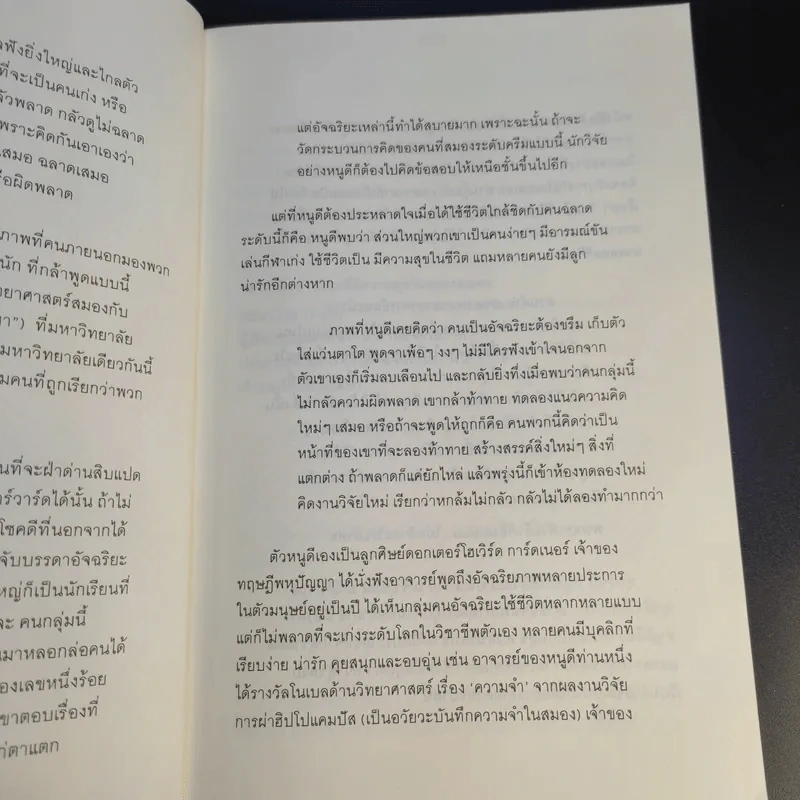 ลฟังยิ่งใหญ่และไกลตัว
ที่จะเป็นคนเก่ง หรือ
ลัวพลาด กลัวดูไม่ฉลาด
เพราะคิดกันเอาเองว่า
เสมอ ฉลาดเสมอ
รือผิดพลาด
ภาพที่คนภายนอกมองพวก
นัก ที่กล้าพูดแบบนี้
ยาศาสตร์สมองกับ
ญา”) ที่มหาวิทยาลัย
มมหาวิทยาลัยเดียวกันนี้
มคนที่ถูกเรียกว่าพวก
นที่จะฝ่าด่านสิบแปด
ร์วาร์ดได้นั้น ถ้าไม่
โชคดีที่นอกจากได้
จับบรรดาอัจฉริยะ
หญ่ก็เป็นนักเรียนที่
ะ คนกลุ่มนี้
นมาหลอกล่อคนได้
องเลขหนึ่งร้อย
ขาตอบเรื่องที่
ก่ตาแตก
แต่อัจฉริยะเหล่านี้ทำได้สบายมาก เพราะฉะนั้น ถ้าจะ
วัดกระบวนการคิดของคนที่สมองระดับครีมแบบนี้ นักวิจัย
อย่างหนูดีก็ต้องไปคิดข้อสอบให้เหนือชั้นขึ้นไปอีก
แต่ที่หนูดีต้องประหลาดใจเมื่อได้ใช้ชีวิตใกล้ชิดกับคนฉลาด
ระดับนี้ก็คือ หนูดีพบว่า ส่วนใหญ่พวกเขาเป็นคนง่ายๆ มีอารมณ์ขัน
เล่นกีฬาเก่ง ใช้ชีวิตเป็น มีความสุขในชีวิต แถมหลายคนยังมีลูก
น่ารักอีกต่างหาก
ภาพที่หนูดีเคยคิดว่า คนเป็นอัจฉริยะต้องขรึม เก็บตัว
ใส่แว่นตาโต พูดจาเพ้อๆ งงๆ ไม่มีใครฟังเข้าใจนอกจาก
ตัวเขาเองก็เริ่มลบเลือนไป และกลับยิ่งทึ่งเมื่อพบว่าคนกลุ่มนี้
ไม่กลัวความผิดพลาด เขากล้าท้าทาย ทดลองแนวความคิด
ใหม่ๆ เสมอ หรือถ้าจะพูดให้ถูกก็คือ คนพวกนี้คิดว่าเป็น
หน้าที่ของเขาที่จะลองท้าทาย สร้างสรรค์สิ่งใหม่ๆ สิ่งที่
แตกต่าง ถ้าพลาดก็แค่ยักไหล่ แล้วพรุ่งนี้ก็เข้าห้องทดลองใหม่
คิดงานวิจัยใหม่ เรียกว่าหกล้มไม่กลัว กลัวไม่ได้ลองทำมากกว่า
ตัวหนูดีเองเป็นลูกศิษย์ดอกเตอร์โฮเวิร์ด การ์ดเนอร์ เจ้าของ
ทฤษฎีพหุปัญญา ได้นั่งฟังอาจารย์พูดถึงอัจฉริยภาพหลายประการ
ในตัวมนุษย์อยู่เป็นปี ได้เห็นกลุ่มคนอัจฉริยะใช้ชีวิตหลากหลายแบบ
แต่ก็ไม่พลาดที่จะเก่งระดับโลกในวิชาชีพตัวเอง หลายคนมีบุคลิกที่
เรียบง่าย น่ารัก คุยสนุกและอบอุ่น เช่น อาจารย์ของหนูดีท่านหนึ่ง
ได้รางวัลโนเบลด้านวิทยาศาสตร์ เรื่อง ‘ความจำ’ จากผลงานวิจัย
การผ่าฮิปโปแคมปัส (เป็นอวัยวะบันทึกความจำในสมอง) เจ้าของ